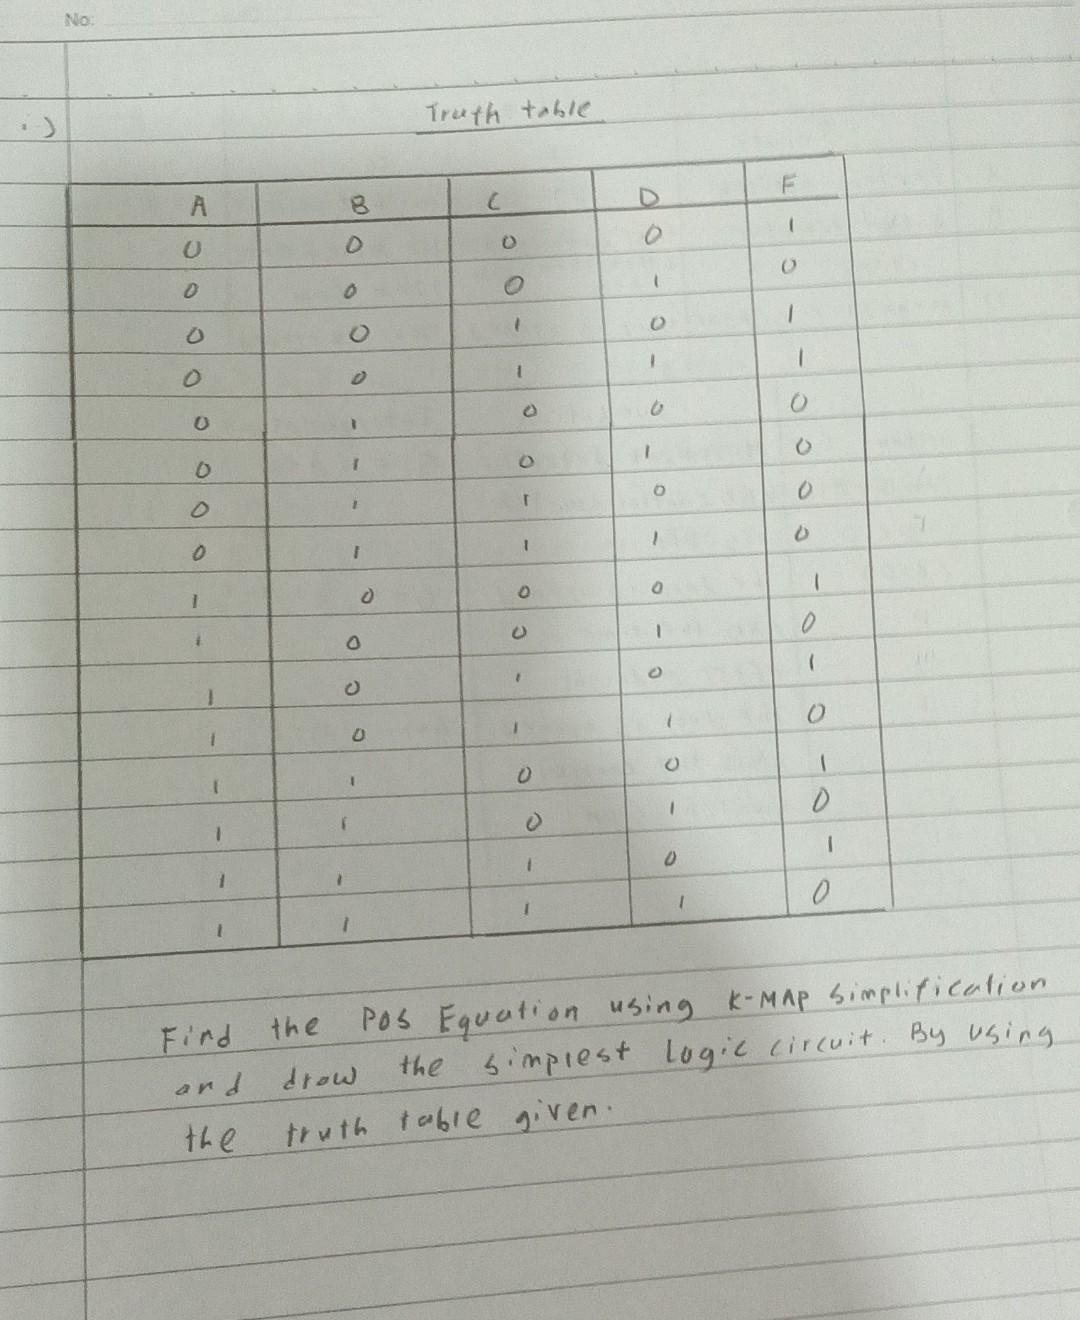 No:
i)
Truth table
A B C D F
0 0 0 0 1
0 0 0 1 0
0 0 1 0 1
0 0 1 1 1
0 1 0 0 0
0 1 0 1 0
0 1 1 0 0
0 1 1 1 0
1 0 0 0 1
1 0 0 1 0
1 0 1 0 1
1 0 1 1 0
1 1 0 0 1
1 1 0 1 0
1 1 1 0 1
1 1 1 1 0
Find the POS Equation using K-MAP Simplification
and draw the simplest Logic circuit. By using
the truth table given.